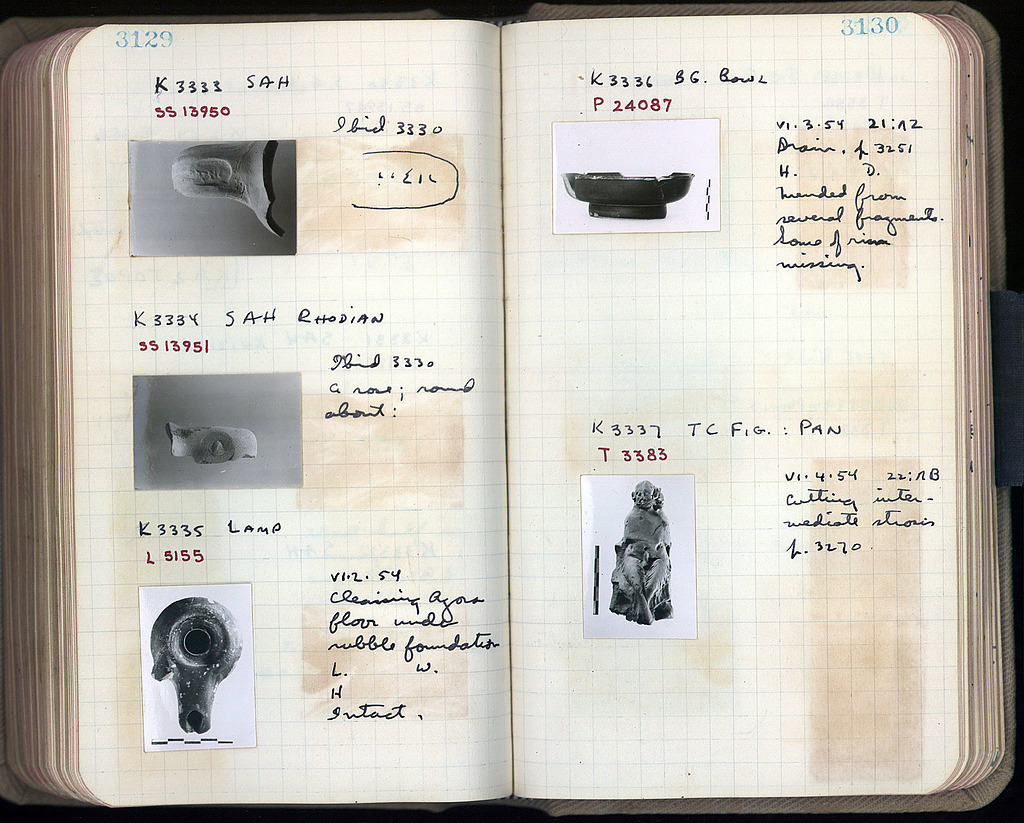 3129
K 3333 SAH
SS 13950
Ibid 3330
K 3334 SAH RHODIAN
SS 13951
Ibid 3330
a rose; round
about:
K 3335 LAMP
L 5155
VI.2.54
Cleaning Agora
floor under
rubble foundation
L. W.
H
Intact.
3130
K 3336 BG. BOWL
P 24087
VI.3.54 21:ΛΖ
Drain, p. 3251
H. D.
Mended from
several fragments.
Some of rim
missing.
K 3337 TC FIG.: PAN
T 3383
VI.4.54 22:ΛΒ
Cutting inter-
mediate strosis
p. 3270.